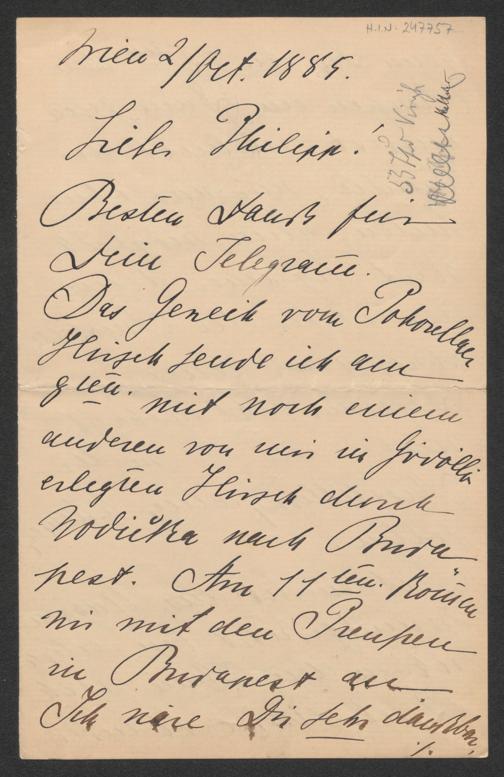 H.I.N. 247757
Wien 2/Oct. 1885.
Lieber Philipp!
Besten Dank für
Dein Telegram.
Das Geweih vom Pohorellaer
Hirsch sende ich am
9ten. mit noch einem
anderen von mir in Gödöllö
erlegten Hirsch durch
Wodička nach Buda
pest. Am 11ten. kommen
wir mit den Preußen
in Budapest an
Ich wäre Dir sehr dankbar,
./.